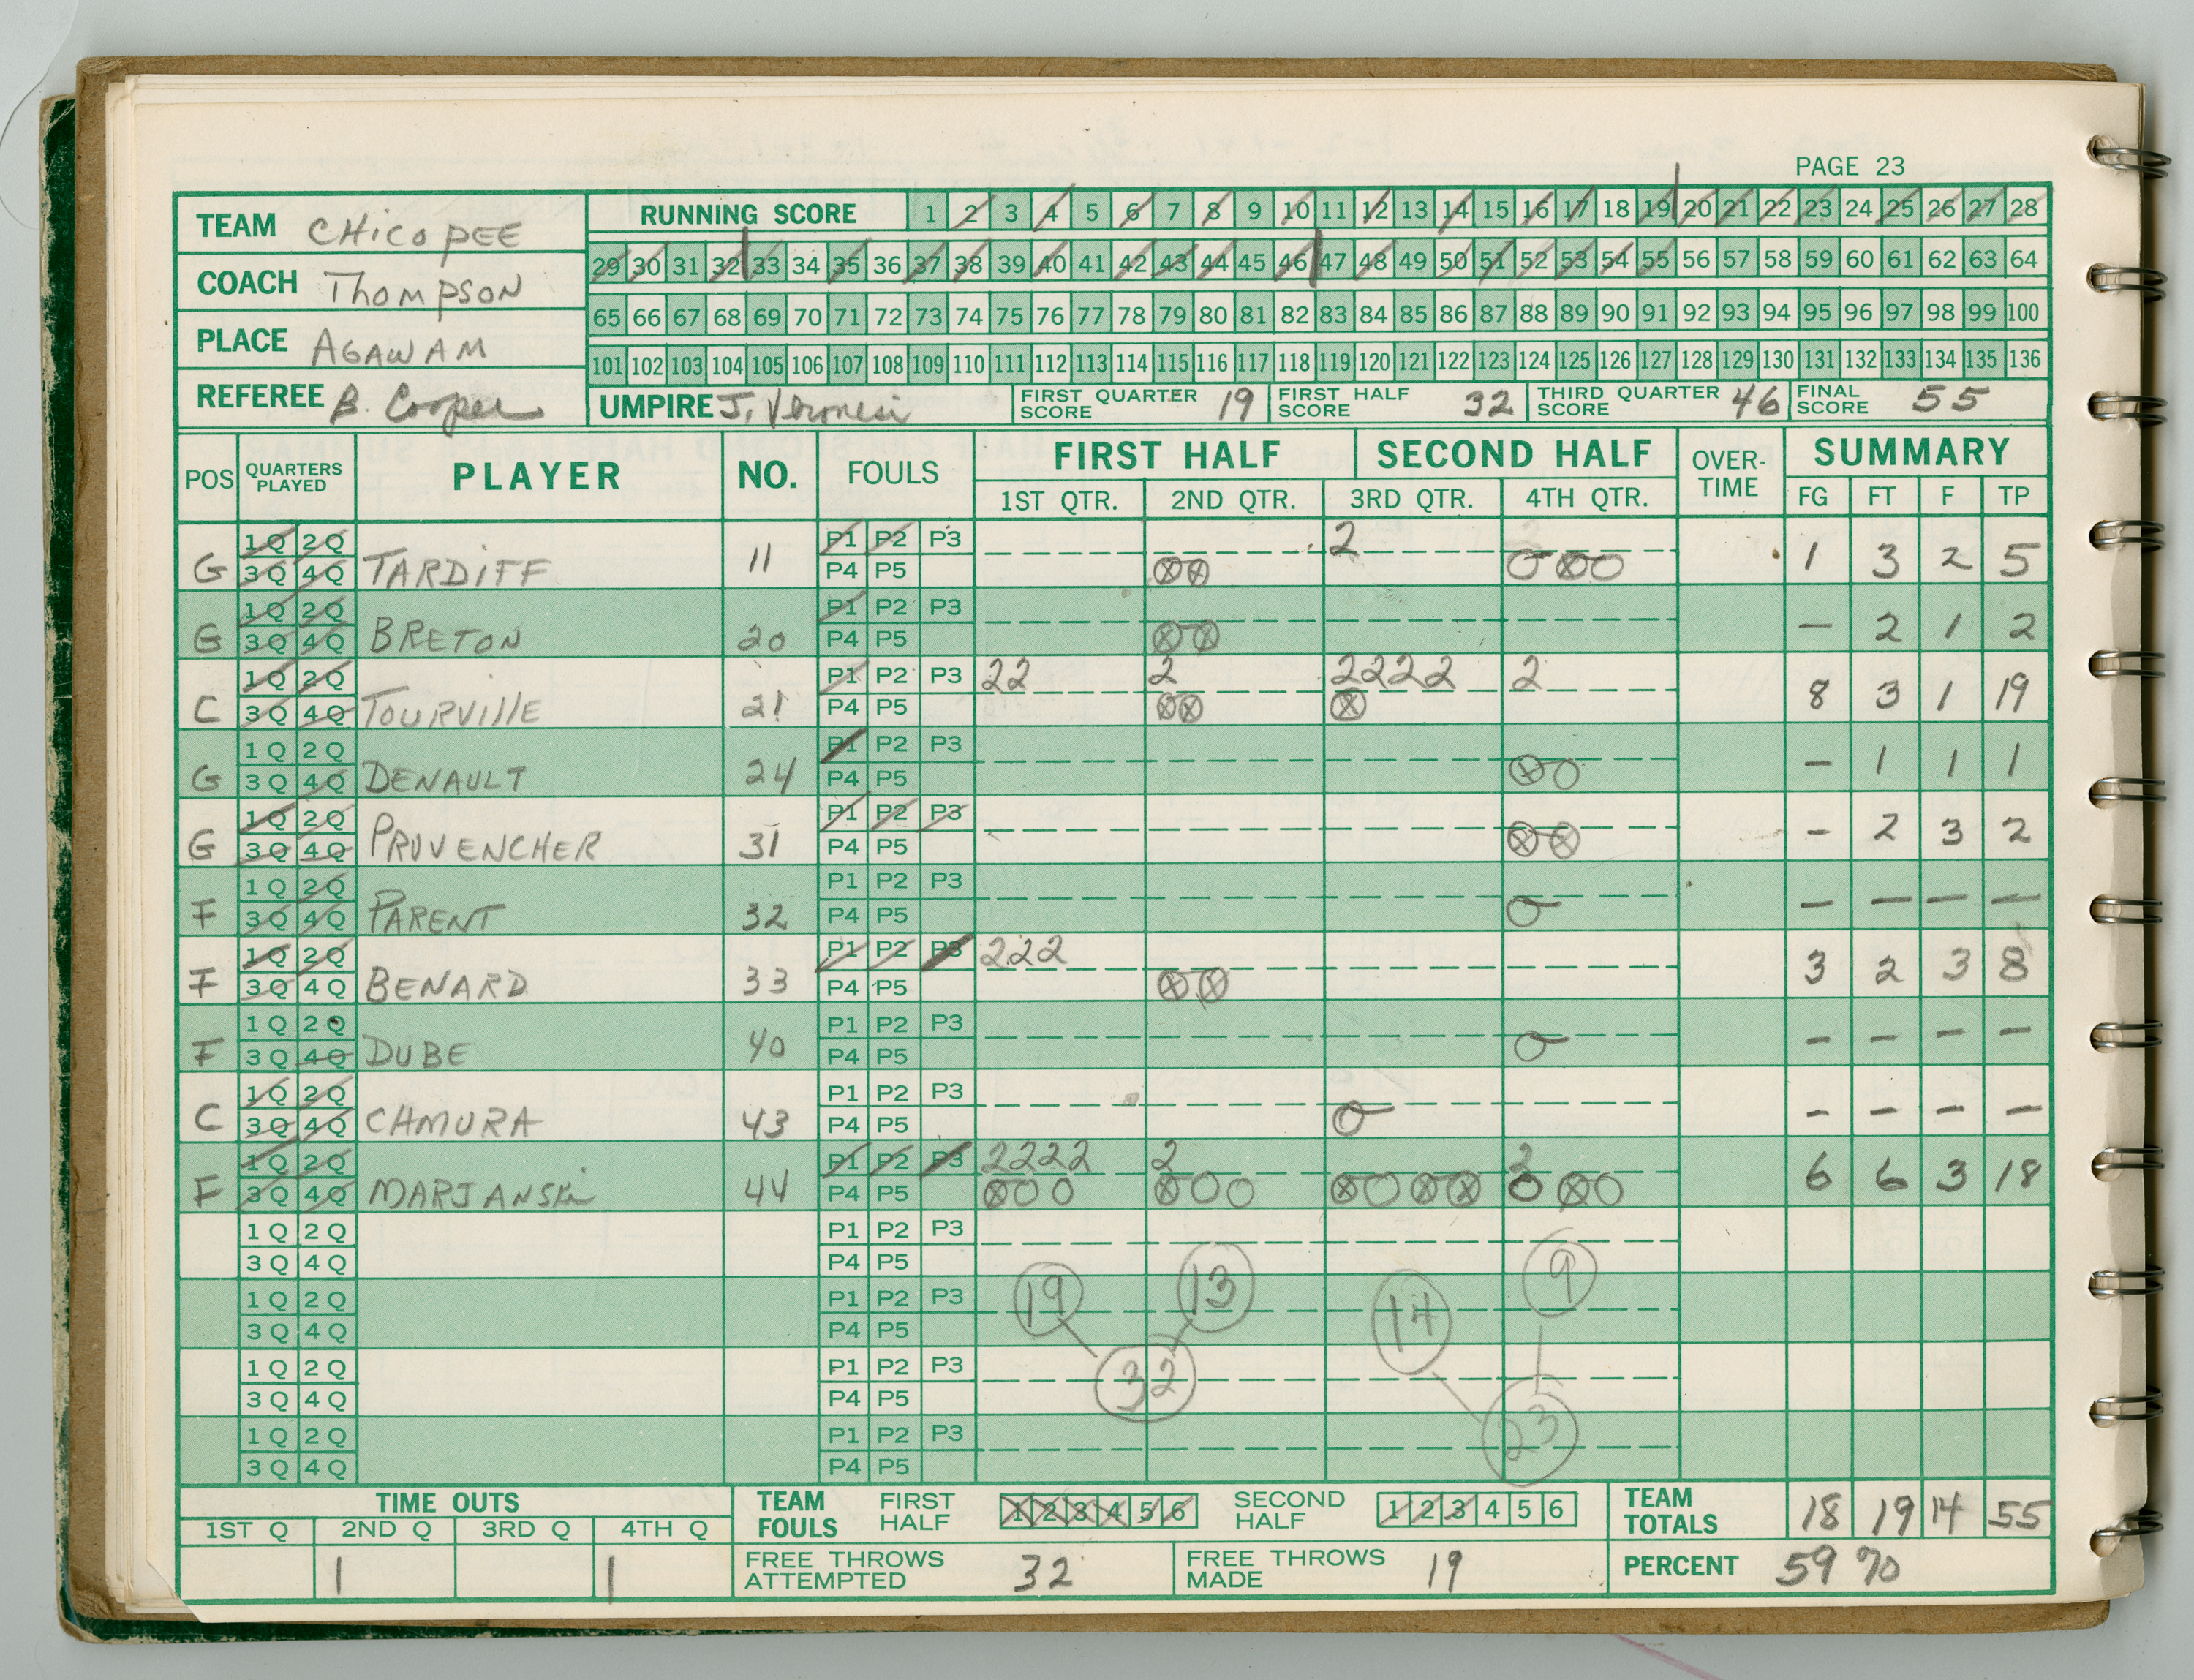 PAGE 23
TEAM CHICOPEE
RUNNING SCORE 1 2 3 4 5 6 7 8 9 10 11 12 13 14 15 16 17 18 19 20 21 22 23 24 25 26 27 28
29 30 31 32 33 34 35 36 37 38 39 40 41 42 43 44 45 46 47 48 49 50 51 52 53 54 55 56 57 58 59 60 61 62 63 64
COACH THOMPSON
65 66 67 68 69 70 71 72 73 74 75 76 77 78 79 80 81 82 83 84 85 86 87 88 89 90 91 92 93 94 95 96 97 98 99 100
PLACE AGAWAM
101 102 103 104 105 106 107 108 109 110 111 112 113 114 115 116 117 118 119 120 121 122 123 124 125 126 127 128 129 130 131 132 133 134 135 136
REFEREE B. Cooper UMPIRE J. Veronesi FIRST QUARTER SCORE 19 FIRST HALF SCORE 32 THIRD QUARTER SCORE 46 FINAL SCORE 55
POS QUARTERS PLAYED PLAYER NO. FOULS FIRST HALF SECOND HALF OVER-TIME SUMMARY
1ST QTR. 2ND QTR. 3RD QTR. 4TH QTR. FG FT F TP
1Q 2Q P1 P2 P3 2
G 3Q 4Q TARDIFF 11 P4 P5 1 3 2 5
1Q 2Q P1 P2 P3
G 3Q 4Q BRETON 20 P4 P5 – 2 1 2
1Q 2Q P1 P2 P3 22 2 2222 2
C 3Q 4Q TOURVILLE 21 P4 P5 8 3 1 19
1Q 2Q P1 P2 P3
G 3Q 4Q DENAULT 24 P4 P5 – 1 1 1
1Q 2Q P1 P2 P3
G 3Q 4Q PROVENCHER 31 P4 P5 – 2 3 2
1Q 2Q P1 P2 P3
F 3Q 4Q PARENT 32 P4 P5 – – – –
1Q 2Q P1 P2 P3 222
F 3Q 4Q BENARD 33 P4 P5 3 2 3 8
1Q 2Q P1 P2 P3
F 3Q 4Q DUBE 40 P4 P5 – – – –
1Q 2Q P1 P2 P3
C 3Q 4Q CHMURA 43 P4 P5 – – – –
1Q 2Q P1 P2 P3 2222 2 2
F 3Q 4Q MARJANSKI 44 P4 P5 6 6 3 18
1Q 2Q P1 P2 P3
3Q 4Q P4 P5
1Q 2Q P1 P2 P3 19 13 14 9
3Q 4Q P4 P5
1Q 2Q P1 P2 P3 32
3Q 4Q P4 P5
1Q 2Q P1 P2 P3 23
3Q 4Q P4 P5
TIME OUTS TEAM FOULS FIRST HALF 1 2 3 4 5 6 SECOND HALF 1 2 3 4 5 6 TEAM TOTALS 18 19 14 55
1ST Q 2ND Q 3RD Q 4TH Q
1 1 FREE THROWS ATTEMPTED 32 FREE THROWS MADE 19 PERCENT 59 %